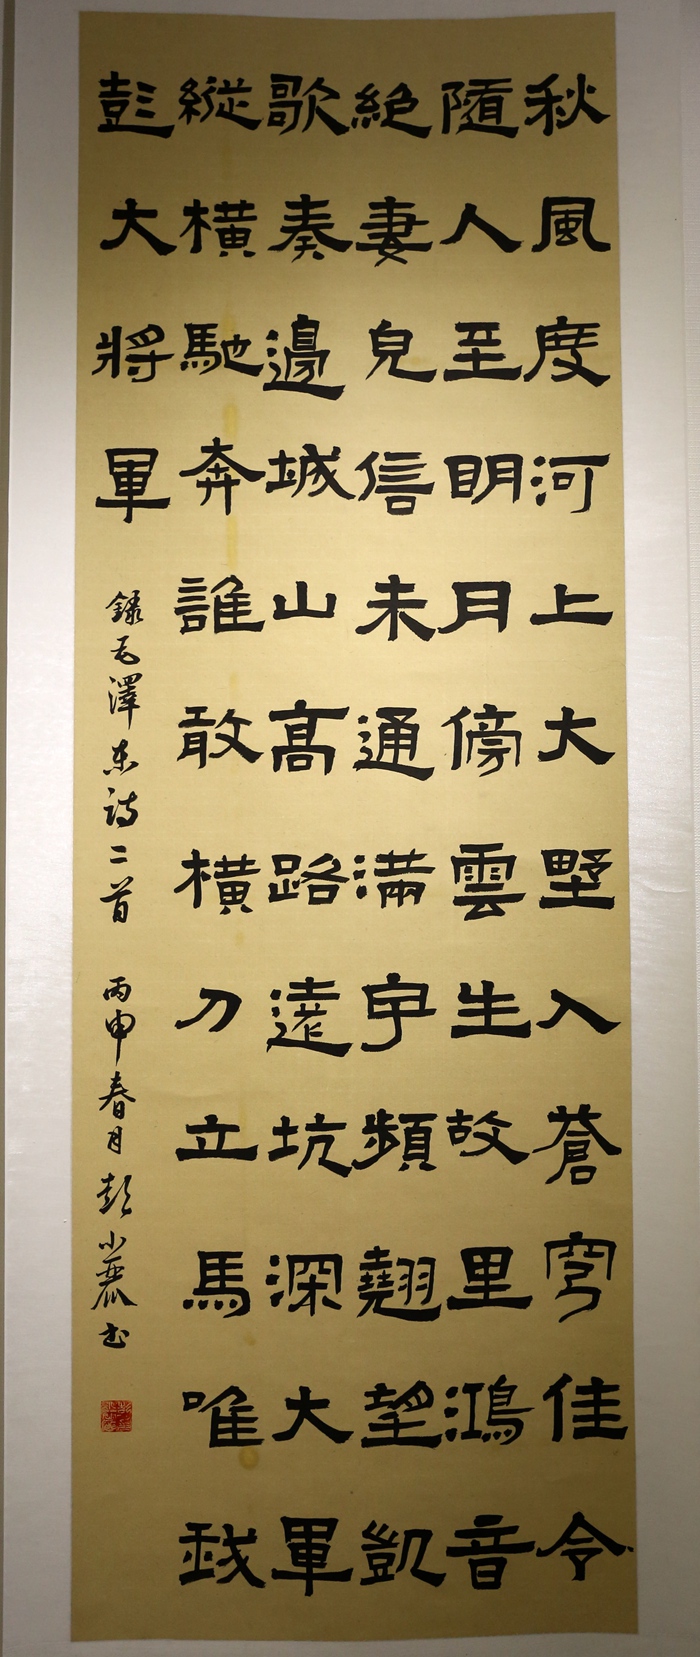 秋風度河上大墅入蒼穹佳令
隨人至明月傍雲生故里鴻音
絕妻兒信未通滿宇頻翹望凱
歌奏邊城山高路遠坑深大軍
縱橫馳奔誰敢橫刀立馬唯我
彭大將軍
錄毛澤東詩二首 丙申春月彭小麗书